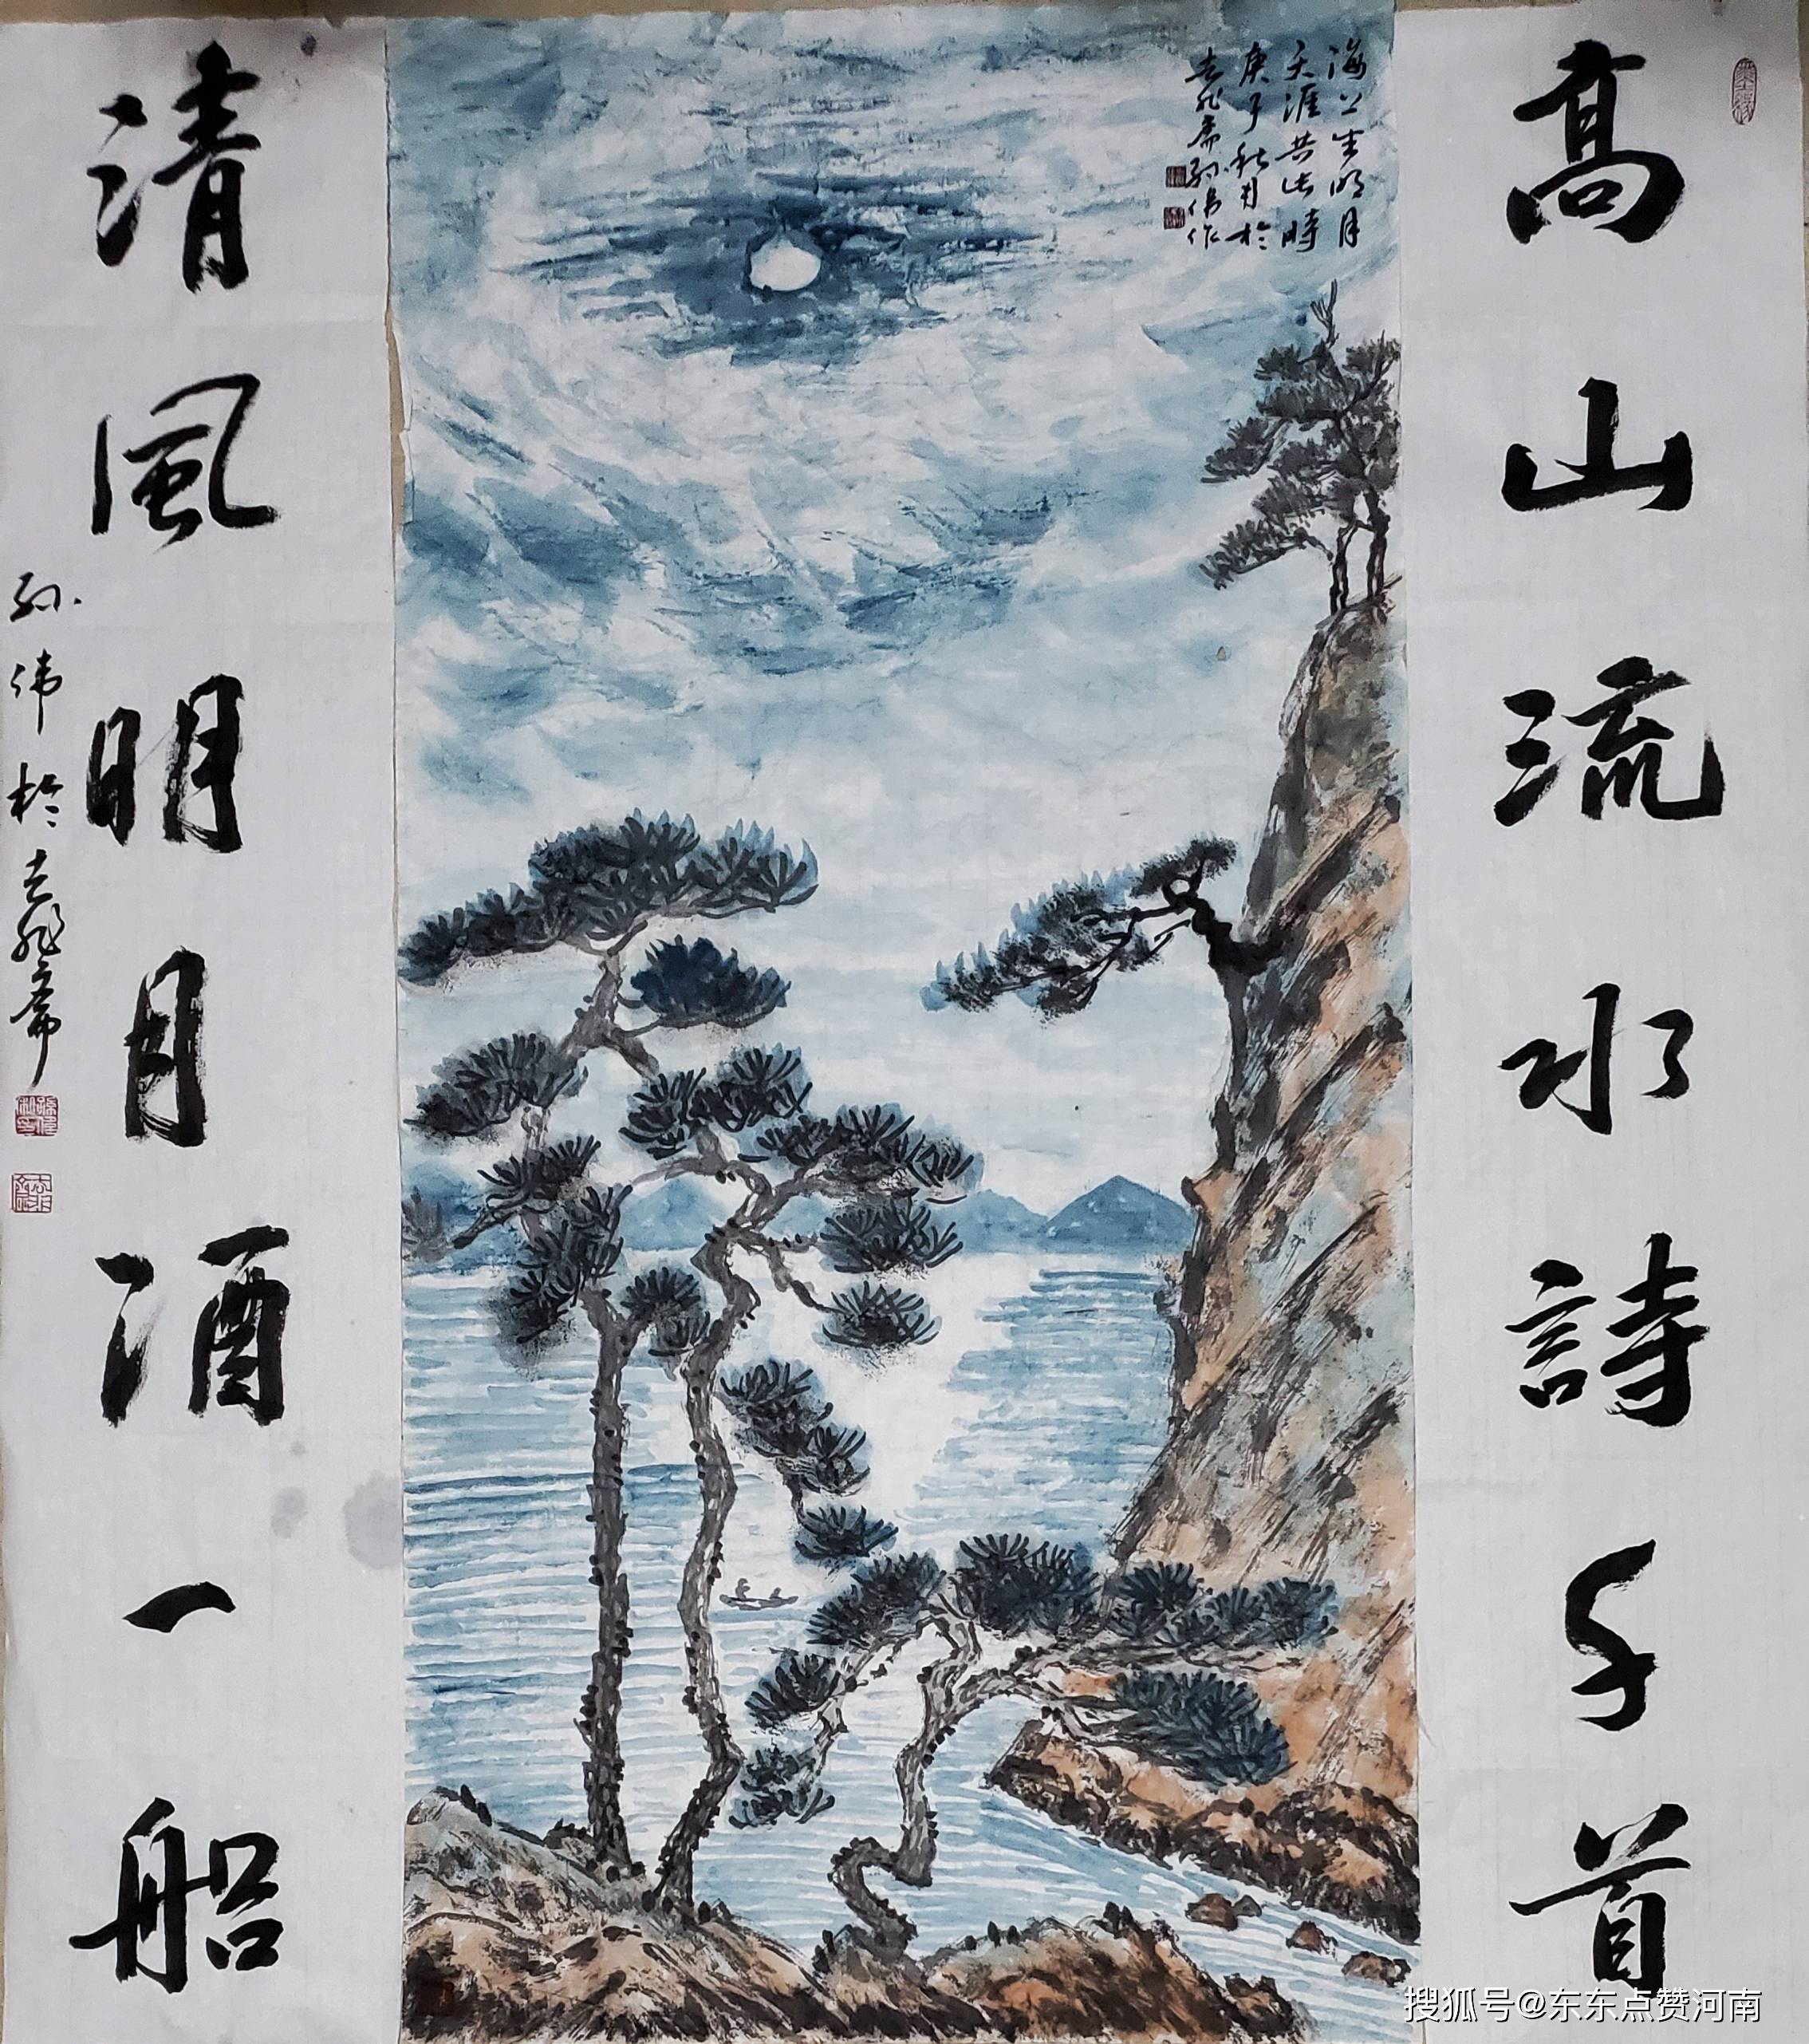 高山流水詩千首
海上生明月
天涯共此時
庚子秋月於
志非斋孙伟作
清風明月酒一船
孙伟於志非斋
搜狐号@东东点赞河南